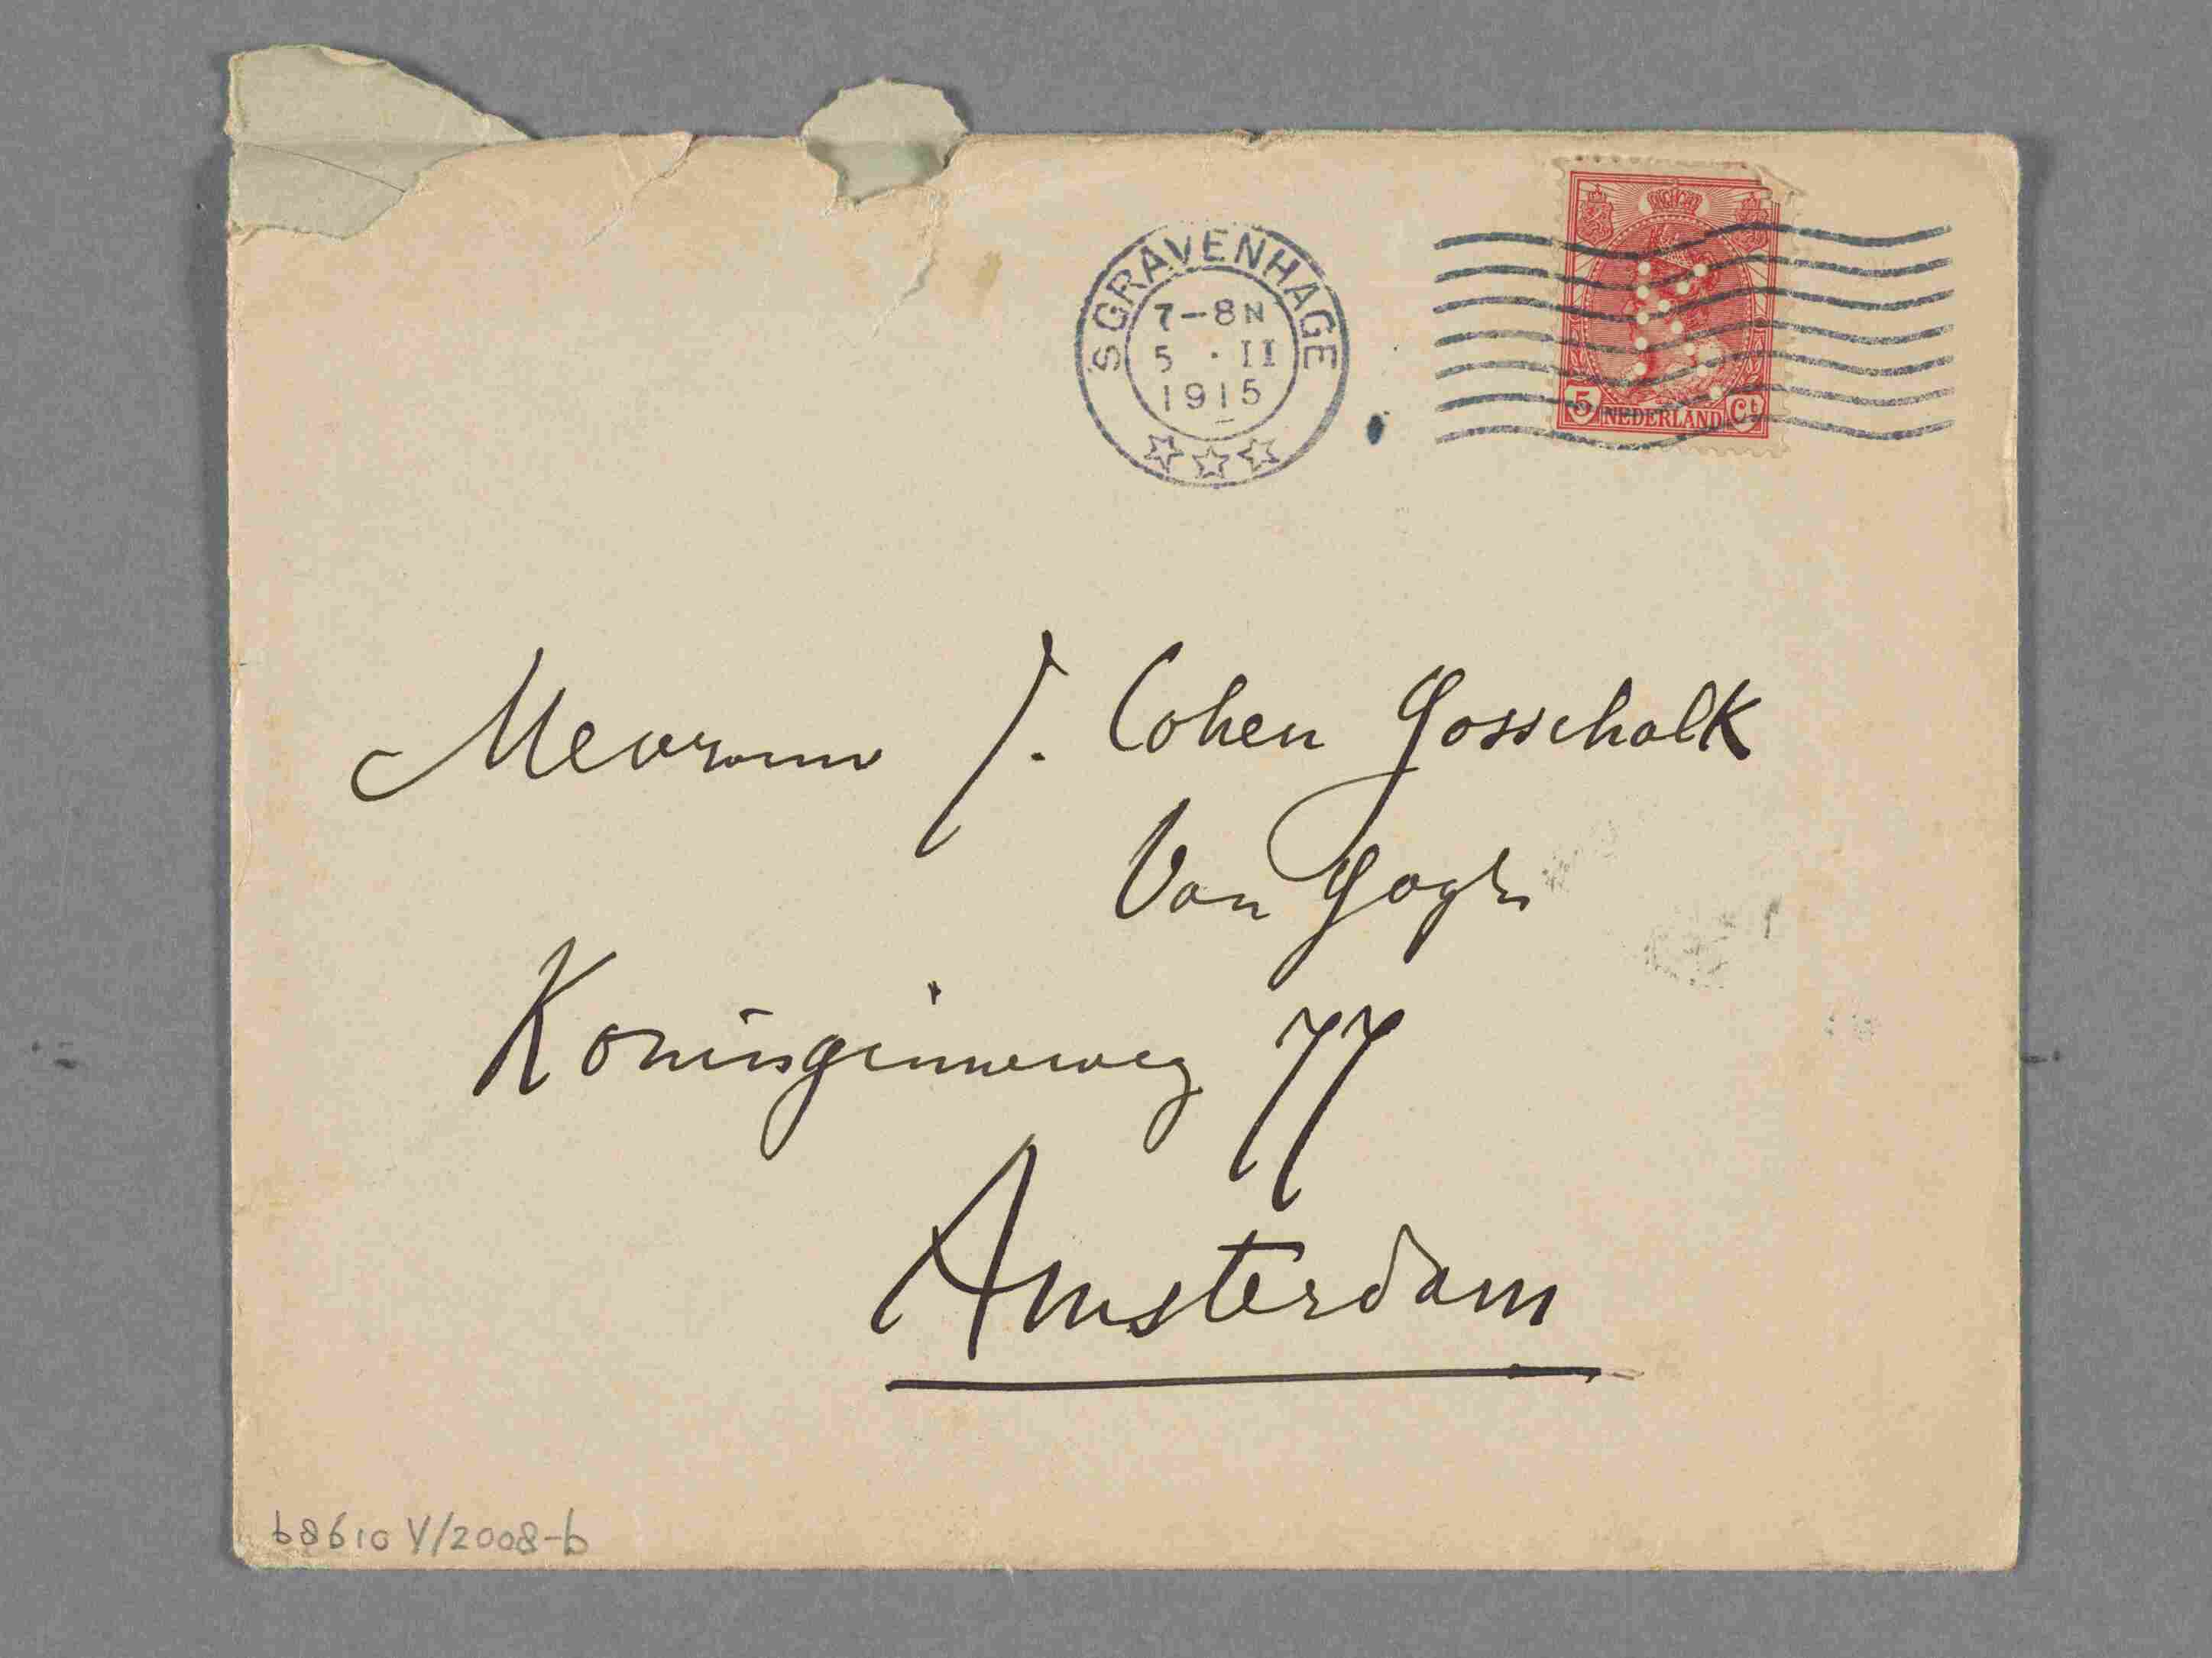 SGRAVENHAGE
7-8N
5 · II
1915
5 NEDERLAND Ct
Mevrouw J. Cohen Gosschalk
Van Gogh
Koninginneweg 77
Amsterdam
b8610 V/2008-b